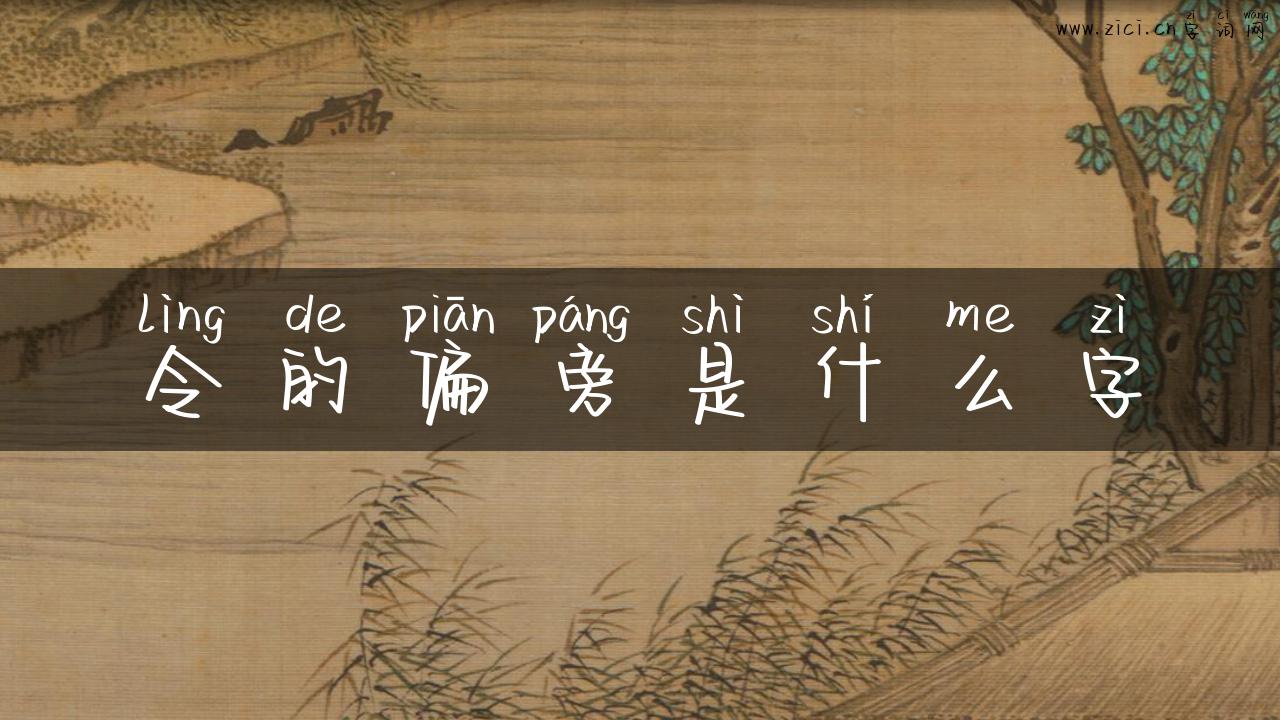 zì cí wǎng
www.zici.cn字词网
lìng de piān páng shì shí me zì
令的偏旁是什么字